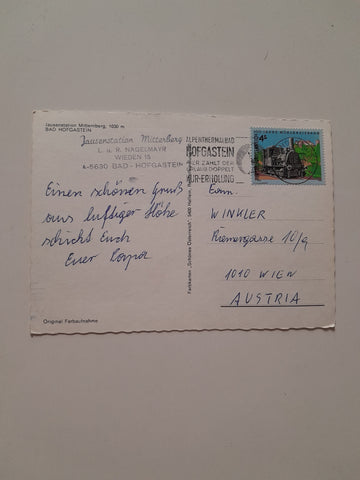 Jausenstation Mitterberg, 1030 m
BAD HOFGASTEIN
Jausenstation Mitterberg
L. u. R. NAGELMAYR
WIEDEN 15
A-5630 BAD-HOFGASTEIN
ALPENTHERMALBAD
HOFGASTEIN
HIER ZÄHLT DER
URLAUB DOPPELT
KUR-ERHOLUNG
Einen schönen Gruß
aus luftiger Höhe
schickt Euch
Euer Papa
Fam.
WINKLER
Riemergasse 10/9
1010 WIEN
AUSTRIA
Farbkarten „Schönes Österreich", 5400 Hallein
Original Farbaufnahme